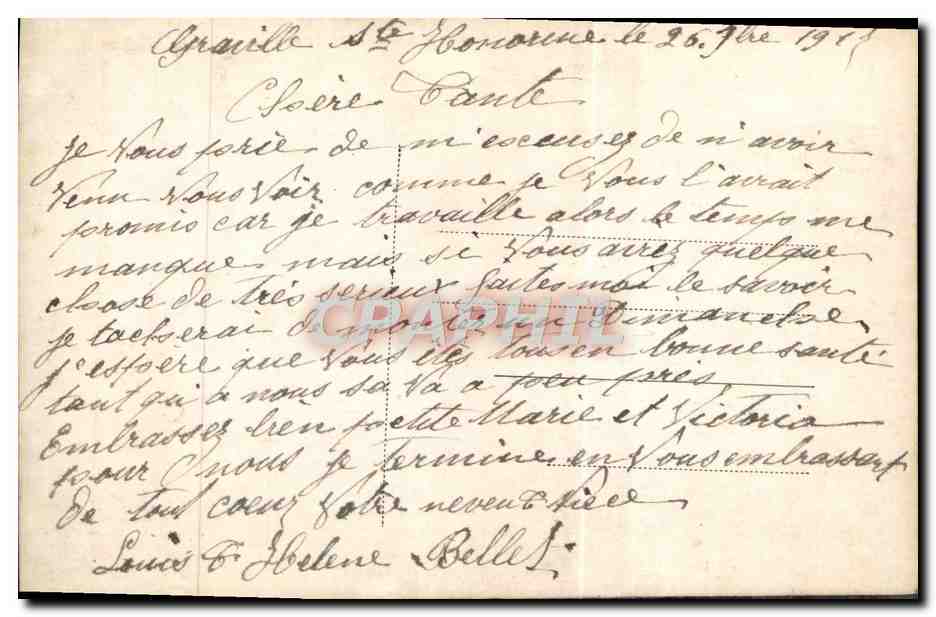 Graville Ste Honorine le 26. 9bre 191
Chère Tante
je vous prie de m'excusez de n'avoir
venu vous voir comme je vous l'avait
promis car je travaille alors le temps me
manque mais si vous avez quelque
chose de très serieux faites moi le savoir
je tacherai de monter un dimanche
j'espère que vous êtes tous en bonne santé
tant qu'a nous sa va a peu pres
Embrassez bien petite Marie et Victoria
pour nous je termine en vous embrassant
de tout coeur votre neveu & nièce
Louis & Helene Bellet
CPAPHIL